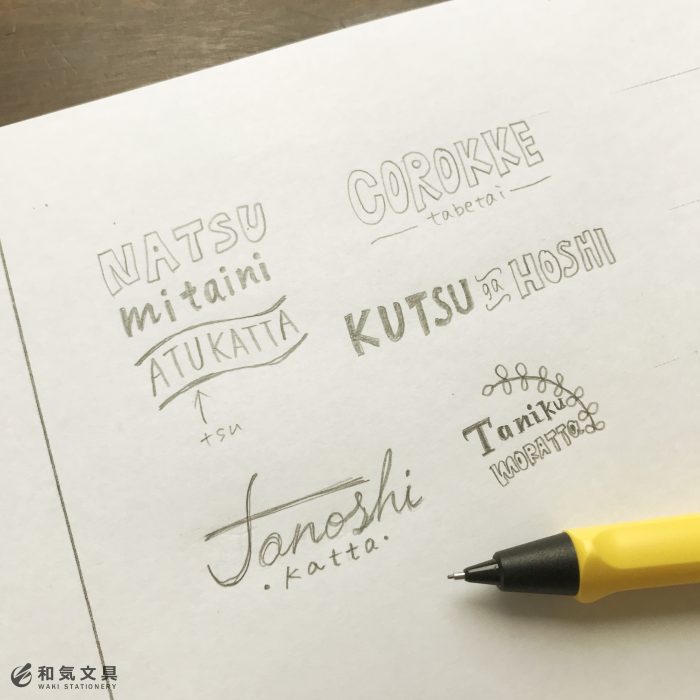 NATSU
mitaini
ATUKATTA
tsu
COROKKE
tabetai
KUTSU ga HOSHI
Taniku
MORATTA
Tanoshi
katta
和気文具
WAKI STATIONERY